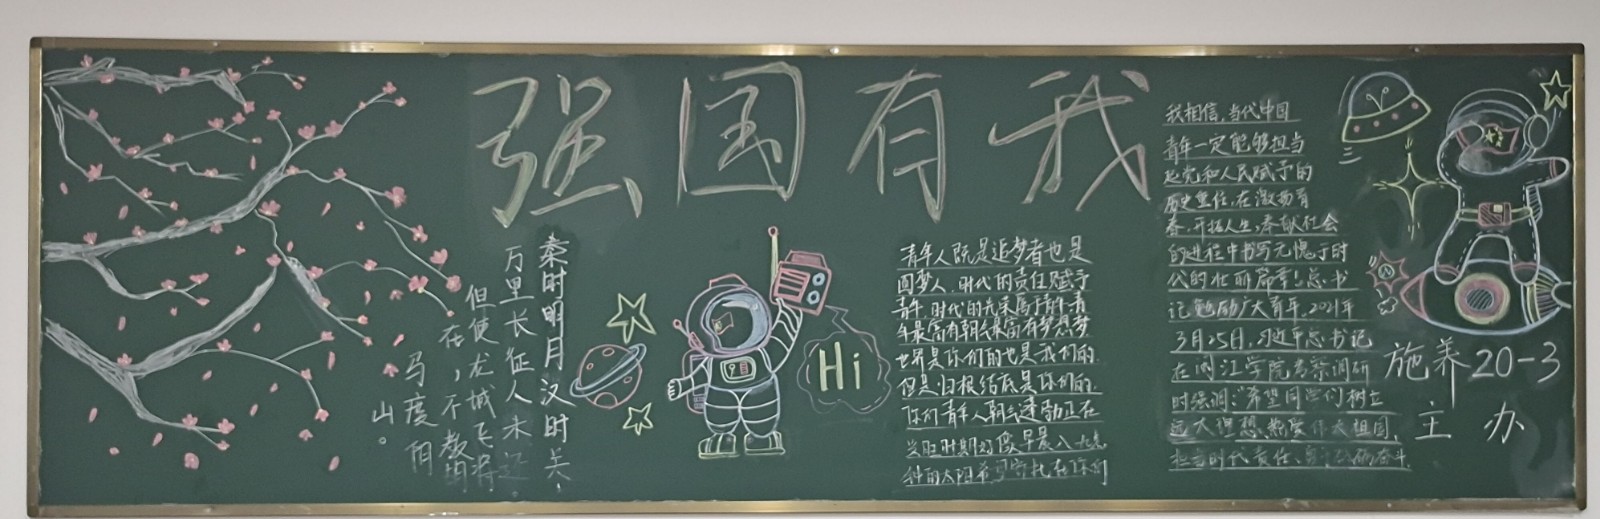 强国有我
秦时明月汉时关，
万里长征人未还。
但使龙城飞将
在，不教胡
马度阴
山。
Hi
青年人既是追梦者也是
圆梦人。时代的责任赋予
青年，时代的光荣属于青年青
年最富有朝气最富有梦想梦
世界是你们的也是我们的.
但是.归根结底是你们的.
你们青年人朝气蓬勃正在
兴旺时期好像早晨八九点
钟的太阳希望寄托在你们
我相信，当代中国
青年一定能够担当
起党和人民赋予的
历史重任，在激扬青
春、开拓人生，奉献社会
的进程中书写无愧于时
代的壮丽篇章！总书
记勉励广大青年，2021年
3月25日，习近平总书记
在闽江学院考察调研
时强调：“希望同学们树立
远大理想、热爱伟大祖国、
担当时代责任、勇于砥砺奋斗
施养20-3
主办